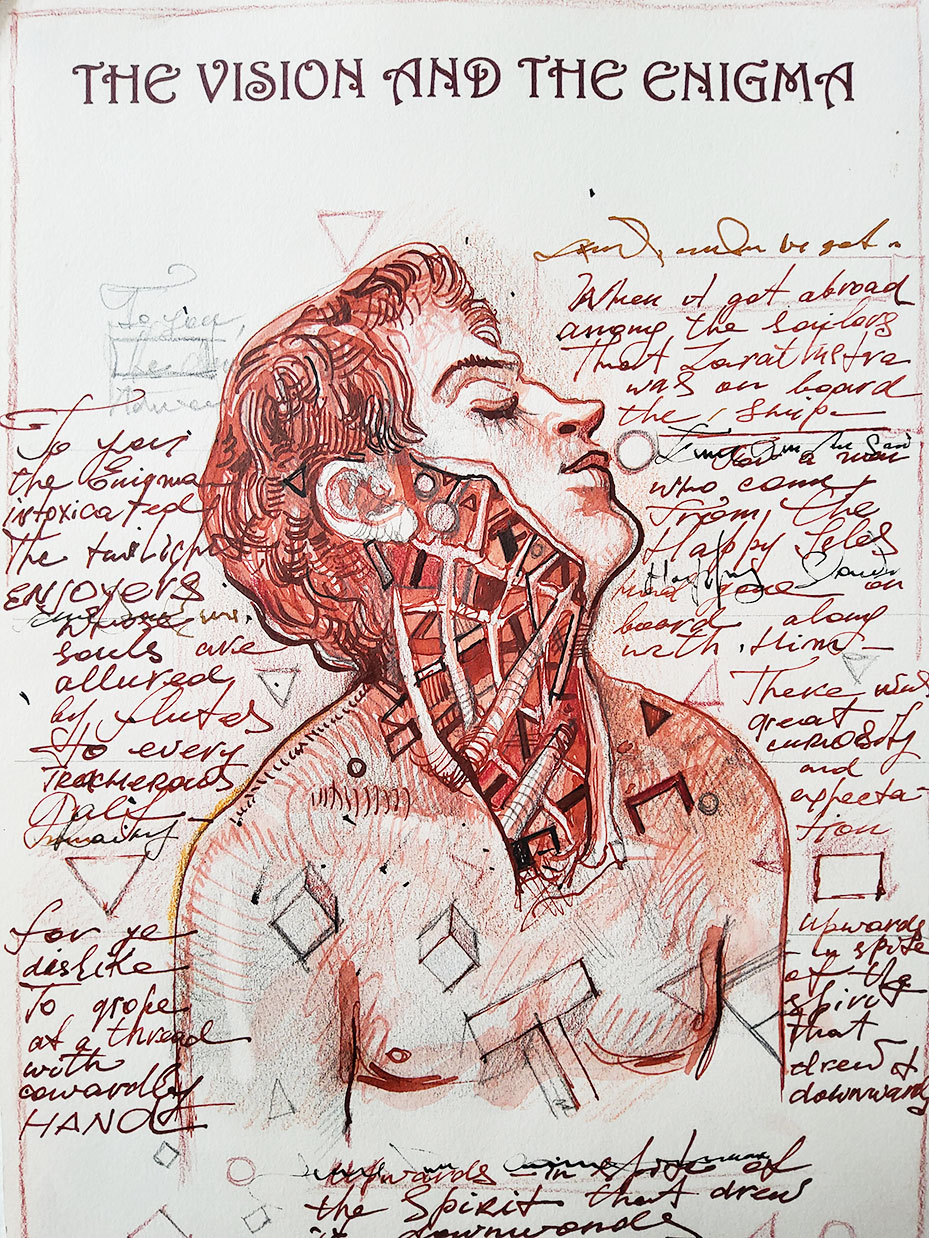 THE VISION AND THE ENIGMA
be got
When I got abroad
among the sailors
that Zarathustra
was on board
the ship
To you,
To you
the Enigma
intoxicated
the twilight
ENJOYERS
whose
souls are
allured
by flutes
to every
TREACHEROUS
for ye
dislike
To grope
at a thread
with
cowardly
HAND
for a man
who came
from the
Happy Isles
on
board along
with him
There was
great
curiosity
and
expecta-
tion
upwards
- in spite
of the
spirit
that
drew it
downwards
upwards in spite of
the Spirit that drew
it downwards